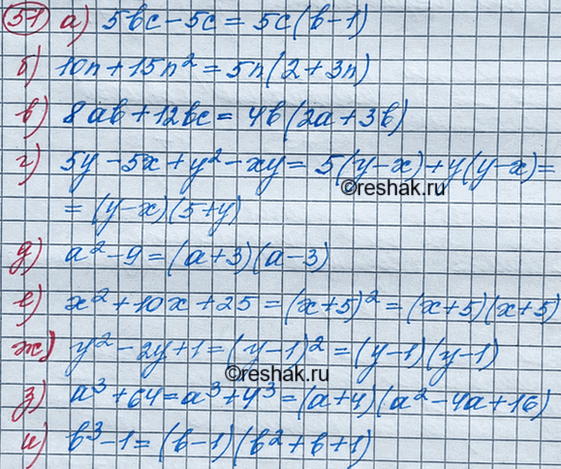 51 а) 5bc-5c=5c(b-1)
б) 10n+15n²=5n(2+3n)
в) 8ab+12bc=4b(2a+3b)
г) 5y-5x+y²-xy=5(y-x)+y(y-x)=
©reshak.ru
=(y-x)(5+y)
д) a²-9=(a+3)(a-3)
е) x²+10x+25=(x+5)²=(x+5)(x+5)
ж) y²-2y+1=(y-1)²=(y-1)(y-1)
©reshak.ru
з) a³+64=a³+4³=(a+4)(a²-4a+16)
и) b³-1=(b-1)(b²+b+1)